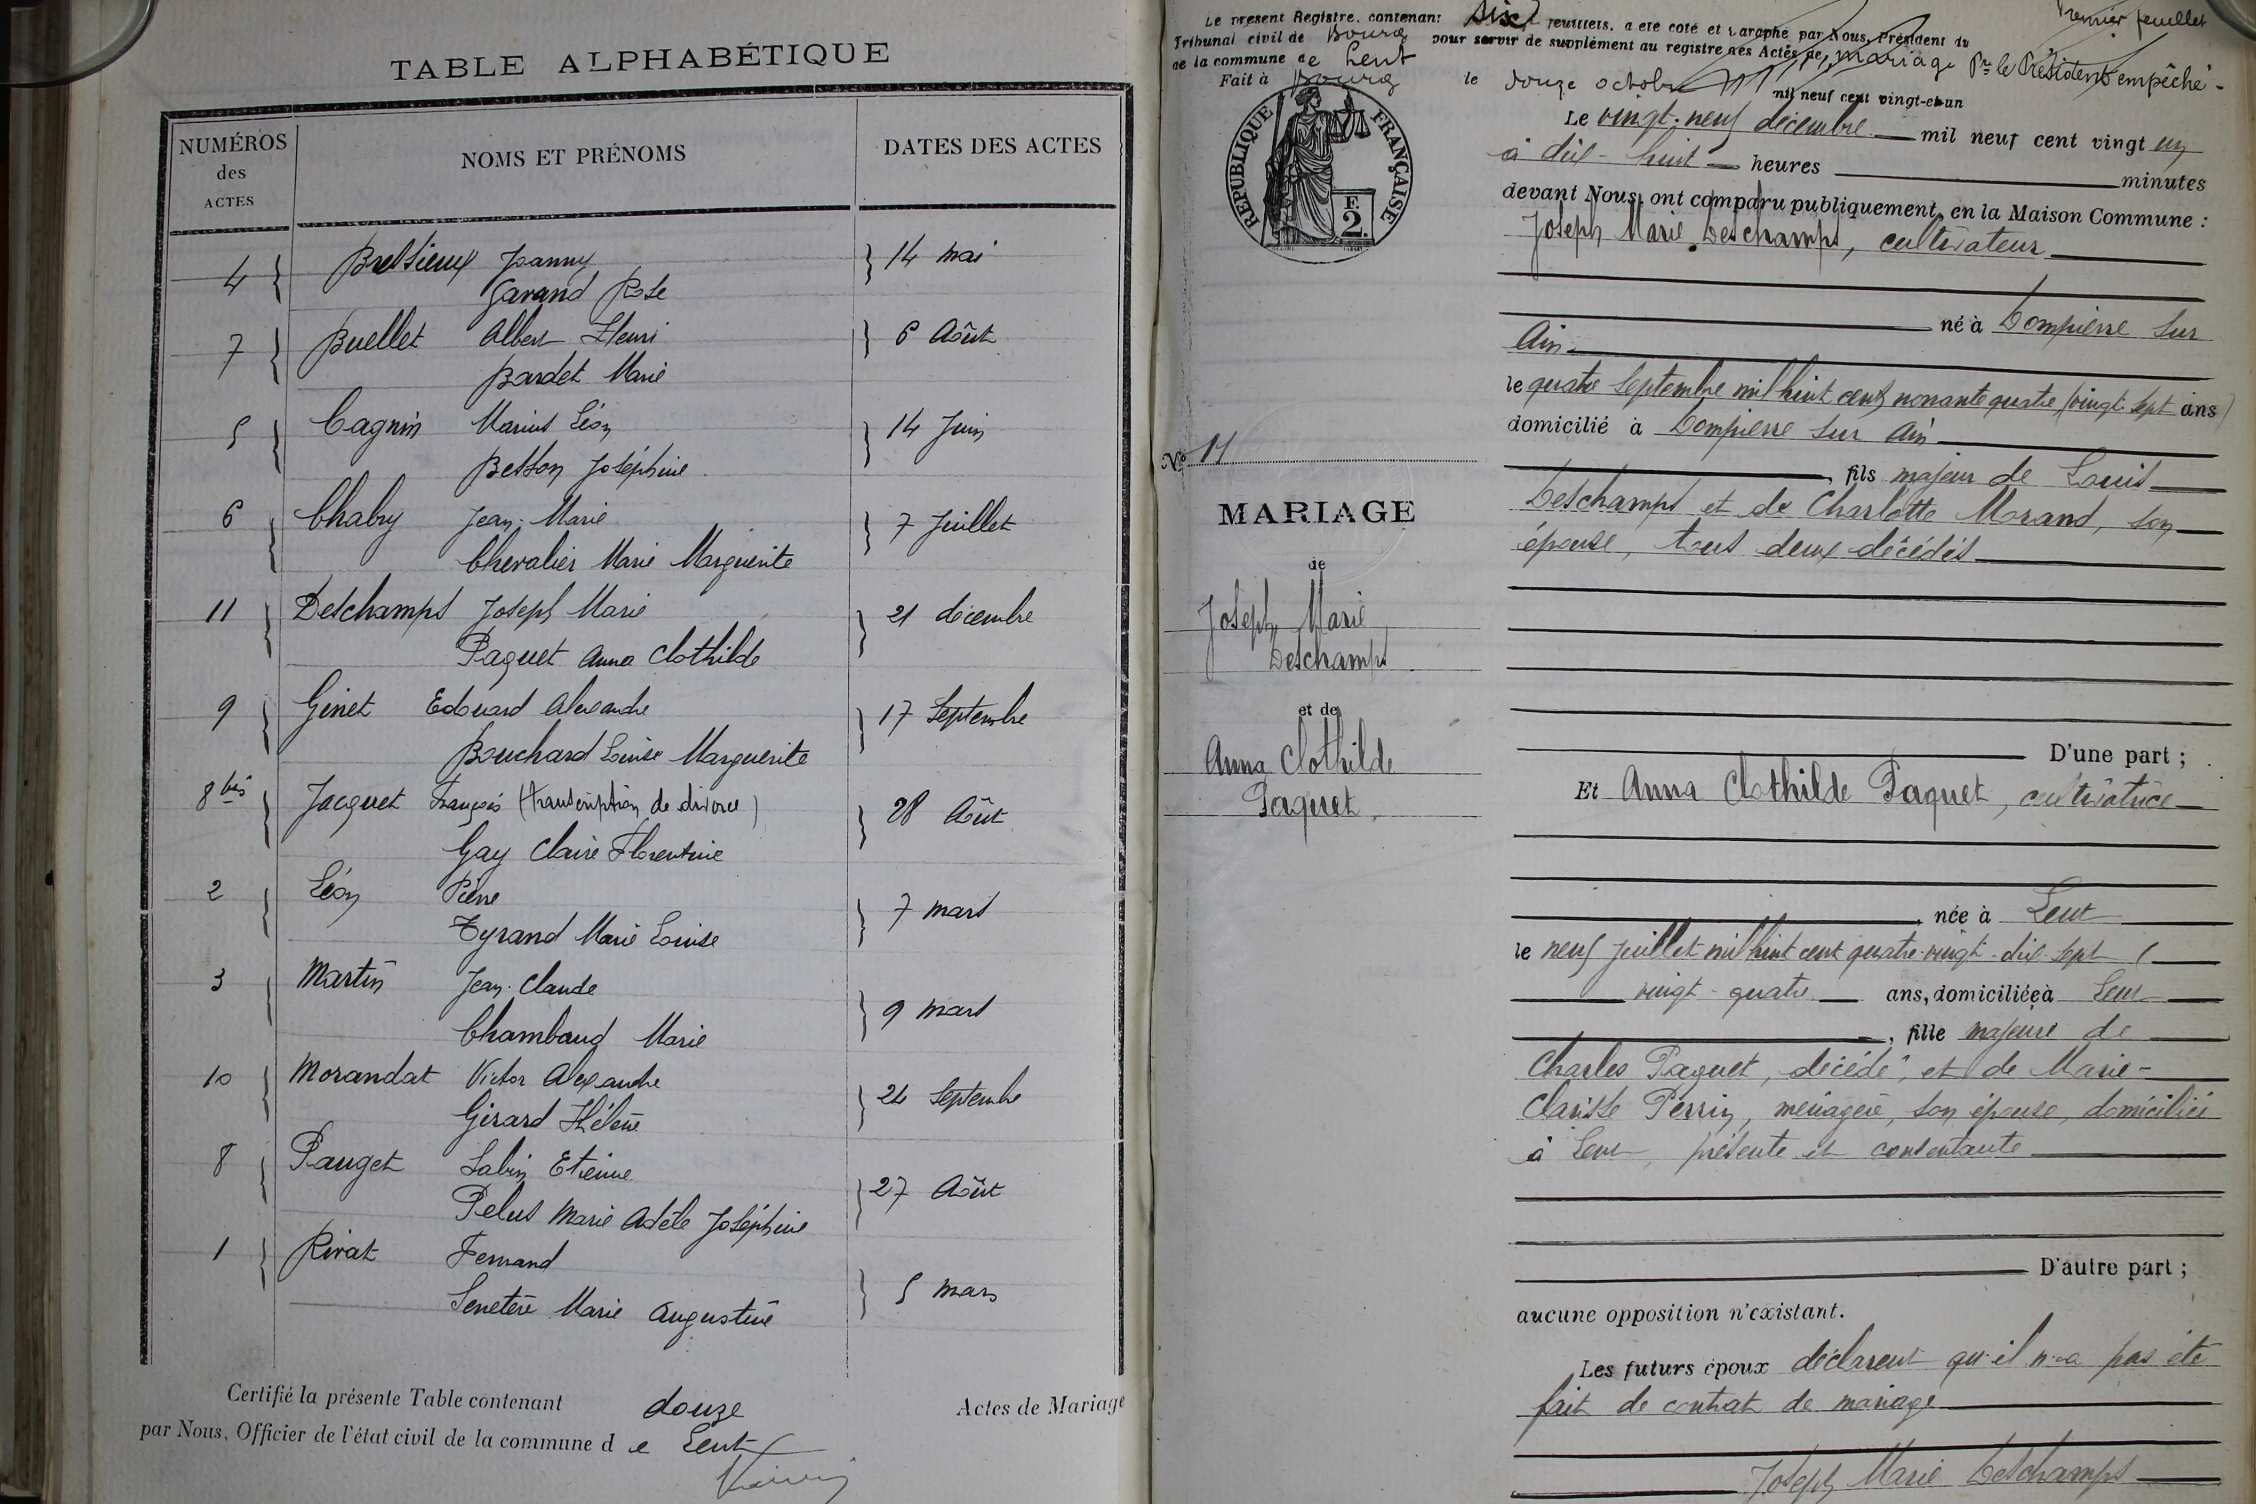 TABLE ALPHABÉTIQUE
NUMÉROS
des
ACTES
NOMS ET PRÉNOMS
DATES DES ACTES
4 Bressieux Joanny 14 mai
Garand Rose
7 Buellet Albert Henri 6 Août
Bardet Marie
5 Cagnin Marius Léon 14 Juin
Besson Joséphine
6 Chabry Jean-Marie 7 Juillet
Chevalier Marie Marguerite
11 Deschamps Joseph Marie 21 décembre
Paquet Anna Clothilde
9 Ginet Edouard Alexandre 17 Septembre
Bouchard Louise Marguerite
8 bis Jacquet François (transcription de divorce) 28 Août
Gay Claire Florentine
2 Léon Pierre 7 mars
Tyrand Marie Louise
3 Martin Jean-Claude 9 mars
Chambaud Marie
10 Morandat Victor Alexandre 24 Septembre
Girard Hélène
8 Pauget Sabin Etienne 27 Août
Pelus Marie Adèle Joséphine
1 Rivat Fernand 5 mars
Senetère Marie Augustine
Certifié la présente Table contenant douze Actes de Mariage
par Nous, Officier de l'état civil de la commune d e Lent
Premier feuillet
Le présent Registre, contenant six feuillets, a été coté et paraphé par Nous, Président du
Tribunal civil de Bourg pour servir de supplément au registre des Actes de mariage
de la commune de Lent Pr le Président empêché
Fait à Bourg le douze octobre mil neuf cent vingt-et-un
RÉPUBLIQUE FRANÇAISE
F
2.
Le vingt-neuf décembre mil neuf cent vingt un
à dix-huit heures minutes
devant Nous, ont comparu publiquement, en la Maison Commune :
Joseph Marie Deschamps, cultivateur
né à Dompierre sur
Ain
le quatre Septembre mil huit cent nonante quatre (vingt-sept ans)
domicilié à Dompierre sur Ain
, fils majeur de Louis
Deschamps et de Charlotte Morand, son
épouse, tous deux décédés
No 11
MARIAGE
de
Joseph Marie
Deschamps
et de
Anna Clothilde
Paquet
D'une part ;
Et Anna Clothilde Paquet, cultivatrice
, née à Lent
le neuf Juillet mil huit cent quatre-vingt-dix-sept (
vingt-quatre ans, domiciliée à Lent
, fille majeure de
Charles Paquet, décédé, et de Marie-
Clarisse Perrin, ménagère, son épouse, domiciliée
à Lent, présente et consentante
D'autre part ;
aucune opposition n'existant.
Les futurs époux déclarent qu'il n'a pas été
fait de contrat de mariage
Joseph Marie Deschamps